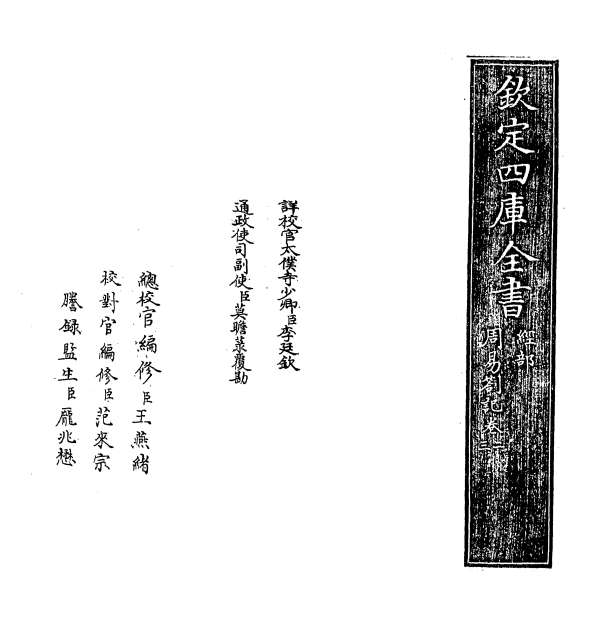 欽定四庫全書
經部
周易劄記卷一
詳校官太僕寺少卿臣李廷欽
通政使司副使臣莫瞻菉覆勘
總校官編修臣王燕緒
校對官編修臣范來宗
謄錄監生臣龐兆懋